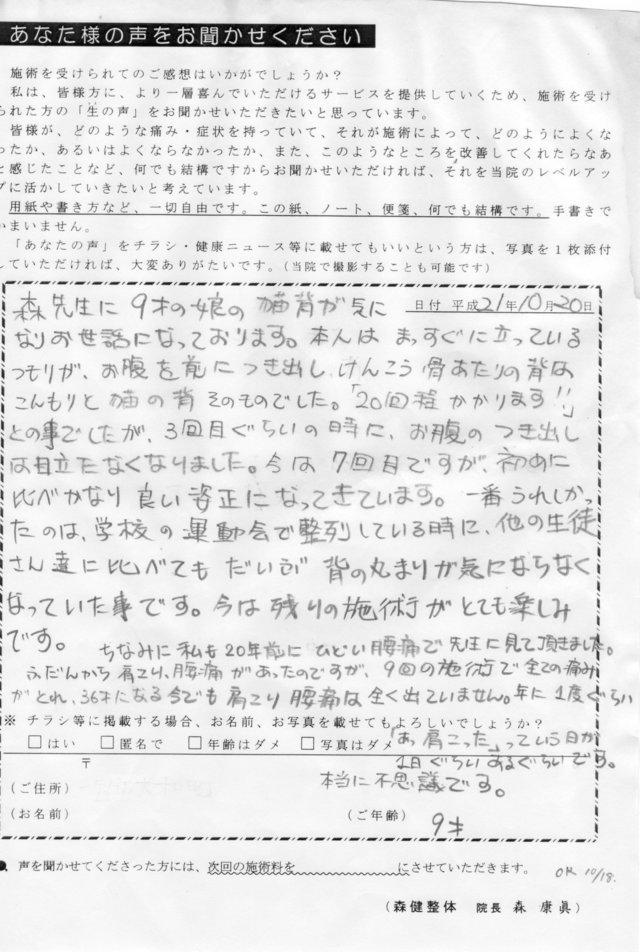 あなた様の声をお聞かせください
施術を受けられてのご感想はいかがでしょうか？
私は、皆様方に、より一層喜んでいただけるサービスを提供していくため、施術を受け
られた方の「生の声」をお聞かせいただきたいと思っています。
皆様が、どのような痛み・症状を持っていて、それが施術によって、どのようによくな
ったか、あるいはよくならなかったか、また、このようなところを改善してくれたらなあ
と感じたことなど、何でも結構ですからお聞かせいただければ、それを当院のレベルアッ
プに活かしていきたいと考えています。
用紙や書き方など、一切自由です。この紙、ノート、便箋、何でも結構です。手書きで
いまいません。
「あなたの声」をチラシ・健康ニュース等に載せてもいいという方は、写真を１枚添付
していただければ、大変ありがたいです。（当院で撮影することも可能です）
日付 平成21年10月20日
森先生に9才の娘の猫背が気に
なりお世話になっております。本人はまっすぐに立っている
つもりが、お腹を前につき出し、けんこう骨あたりの背は
こんもりと猫の背そのものでした。「20回程かかります!!」
との事でしたが、3回目ぐらいの時に、お腹のつき出し
は目立たなくなりました。今は7回目ですが、初めに
比べかなり良い姿正になってきています。一番うれしかっ
たのは、学校の運動会で整列している時に、他の生徒
さん達に比べてもだいぶ背の丸まりが気にならなく
なっていた事です。今は残りの施術がとても楽しみ
です。ちなみに私も20年前にひどい腰痛で先生に見て頂きました。
ふだんから肩こり、腰痛があったのですが、9回の施術で全ての痛み
がとれ、36才になる今でも肩こり腰痛は全く出ていません。年に1度ぐらい
「あっ肩こった」っていう日が
1日ぐらいあるぐらいです。
本当に不思議です。
※ チラシ等に掲載する場合、お名前、お写真を載せてもよろしいでしょうか？
□はい □匿名で □年齢はダメ □写真はダメ
〒
（ご住所）
（お名前） （ご年齢）
9才
● 声を聞かせてくださった方には、次回の施術料を にさせていただきます。
OK 10/18.
（森健整体 院長 森 康眞）